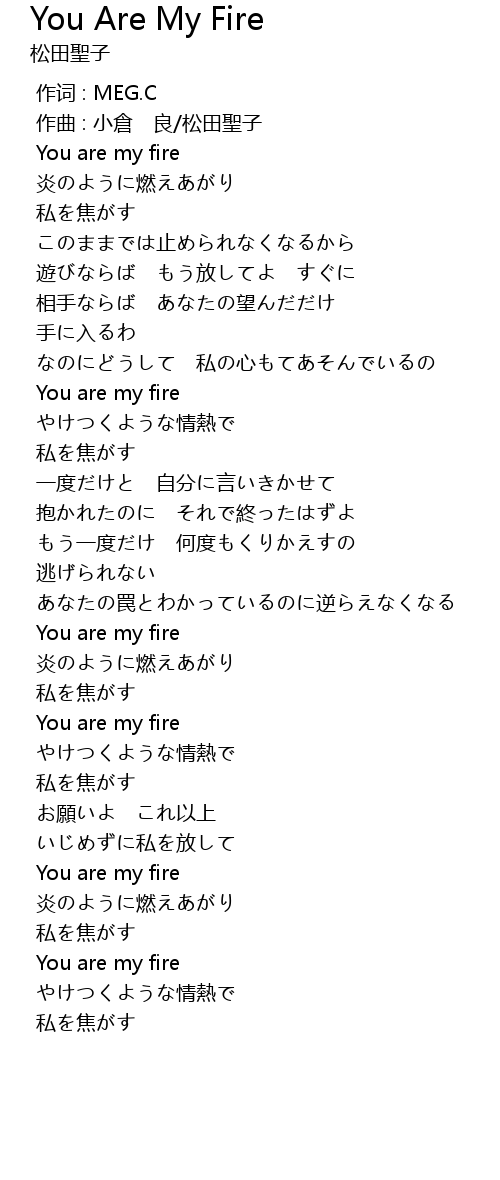 You Are My Fire
松田聖子
作词 : MEG.C
作曲 : 小倉　良/松田聖子
You are my fire
炎のように燃えあがり
私を焦がす
このままでは止められなくなるから
遊びならば　もう放してよ　すぐに
相手ならば　あなたの望んだだけ
手に入るわ
なのにどうして　私の心もてあそんでいるの
You are my fire
やけつくような情熱で
私を焦がす
一度だけと　自分に言いきかせて
抱かれたのに　それで終ったはずよ
もう一度だけ　何度もくりかえすの
逃げられない
あなたの罠とわかっているのに逆らえなくなる
You are my fire
炎のように燃えあがり
私を焦がす
You are my fire
やけつくような情熱で
私を焦がす
お願いよ　これ以上
いじめずに私を放して
You are my fire
炎のように燃えあがり
私を焦がす
You are my fire
やけつくような情熱で
私を焦がす